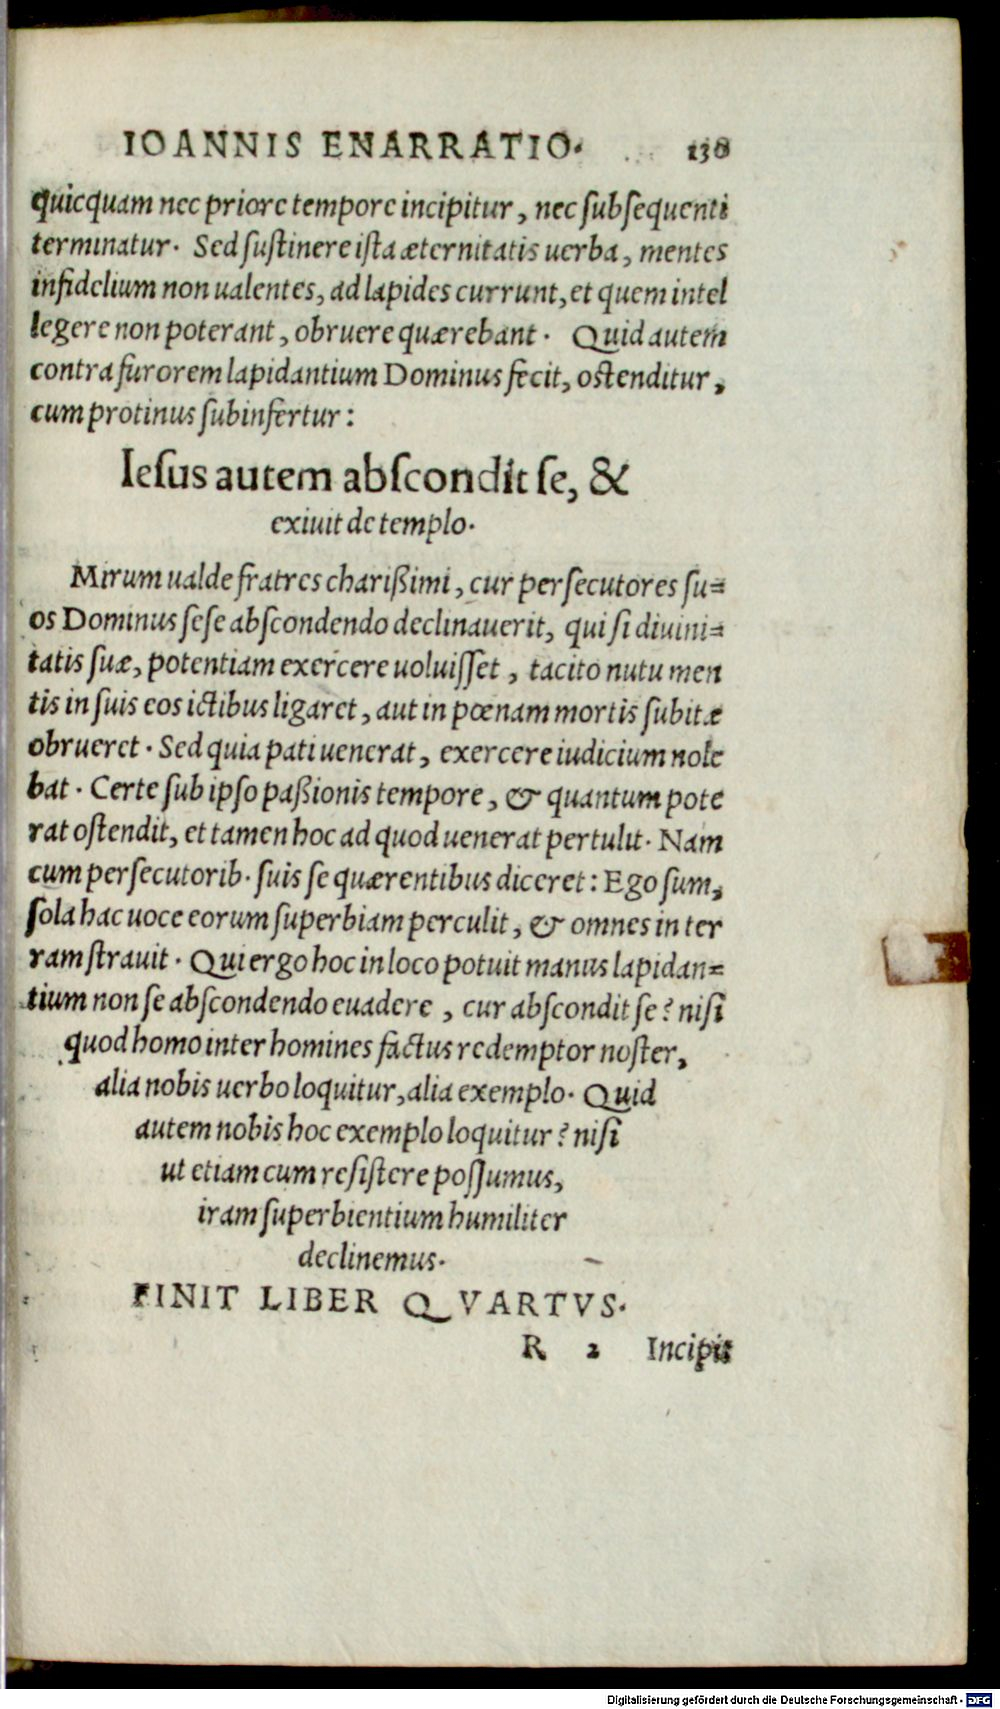 IOANNIS ENARRATIO. 130
quicquam nec priore tempore incipitur, nec subsequenti
terminatur. Sed sustinere ista æternitatis uerba, mentes
infidelium non ualentes, ad lapides currunt, et quem intel
legere non poterant, obruere quærebant. Quid autem
contra furorem lapidantium Dominus fecit, ostenditur,
cum protinus subinfertur:
Iesus autem abscondit se, &
exiuit de templo.
Mirum ualde fratres charißimi, cur persecutores su=
os Dominus sese abscondendo declinauerit, qui si diuini=
tatis suæ, potentiam exercere uoluisset, tacito nutu men
tis in suis eos ictibus ligaret, aut in pœnam mortis subitæ
obrueret. Sed quia pati uenerat, exercere iudicium nole
bat. Certe sub ipso paßionis tempore, & quantum pote
rat ostendit, et tamen hoc ad quod uenerat pertulit. Nam
cum persecutorib. suis se quærentibus diceret: Ego sum,
sola hac uoce eorum superbiam perculit, & omnes in ter
ram strauit. Qui ergo hoc in loco potuit manus lapidan=
tium non se abscondendo euadere, cur abscondit se? nisi
quod homo inter homines factus redemptor noster,
alia nobis uerbo loquitur, alia exemplo. Quid
autem nobis hoc exemplo loquitur? nisi
ut etiam cum resistere possumus,
iram superbientium humiliter
declinemus.
FINIT LIBER QVARTVS.
R 2 Incipit
Digitalisierung gefördert durch die Deutsche Forschungsgemeinschaft - DFG